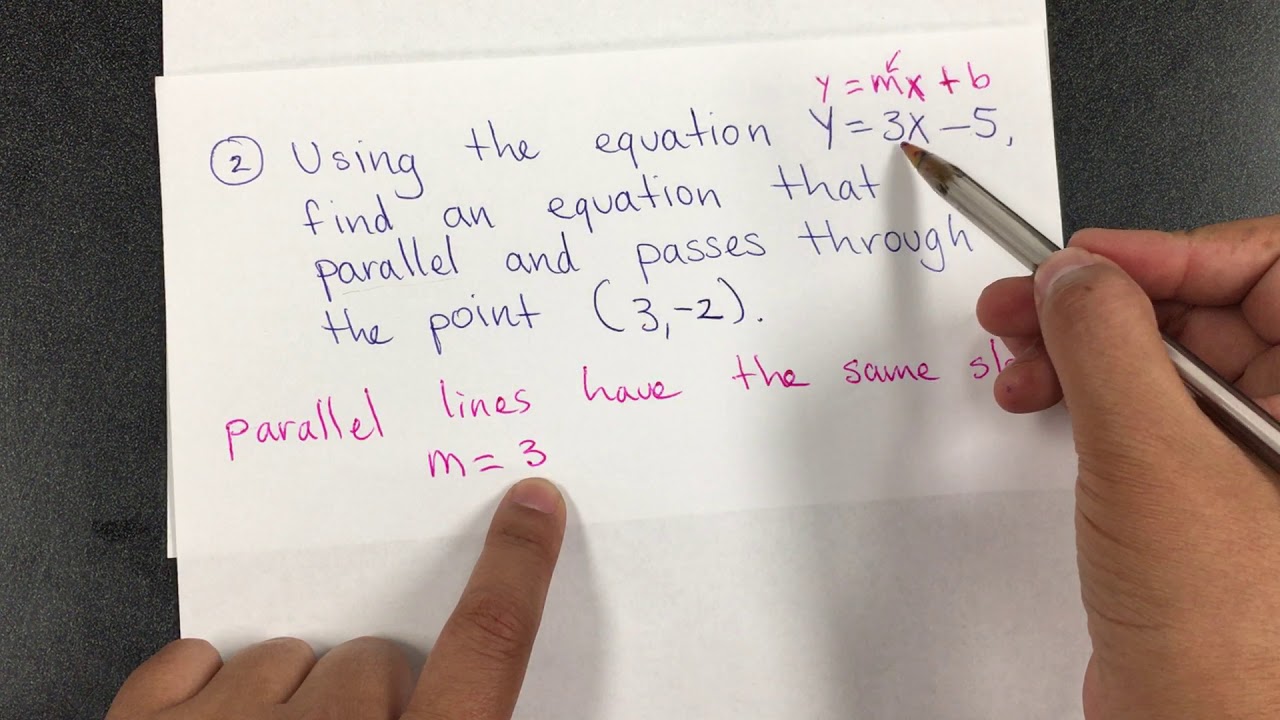 y = mx + b
② Using the equation y = 3x - 5,
find an equation that
parallel and passes through
the point (3,-2).
parallel lines have the same
m = 3